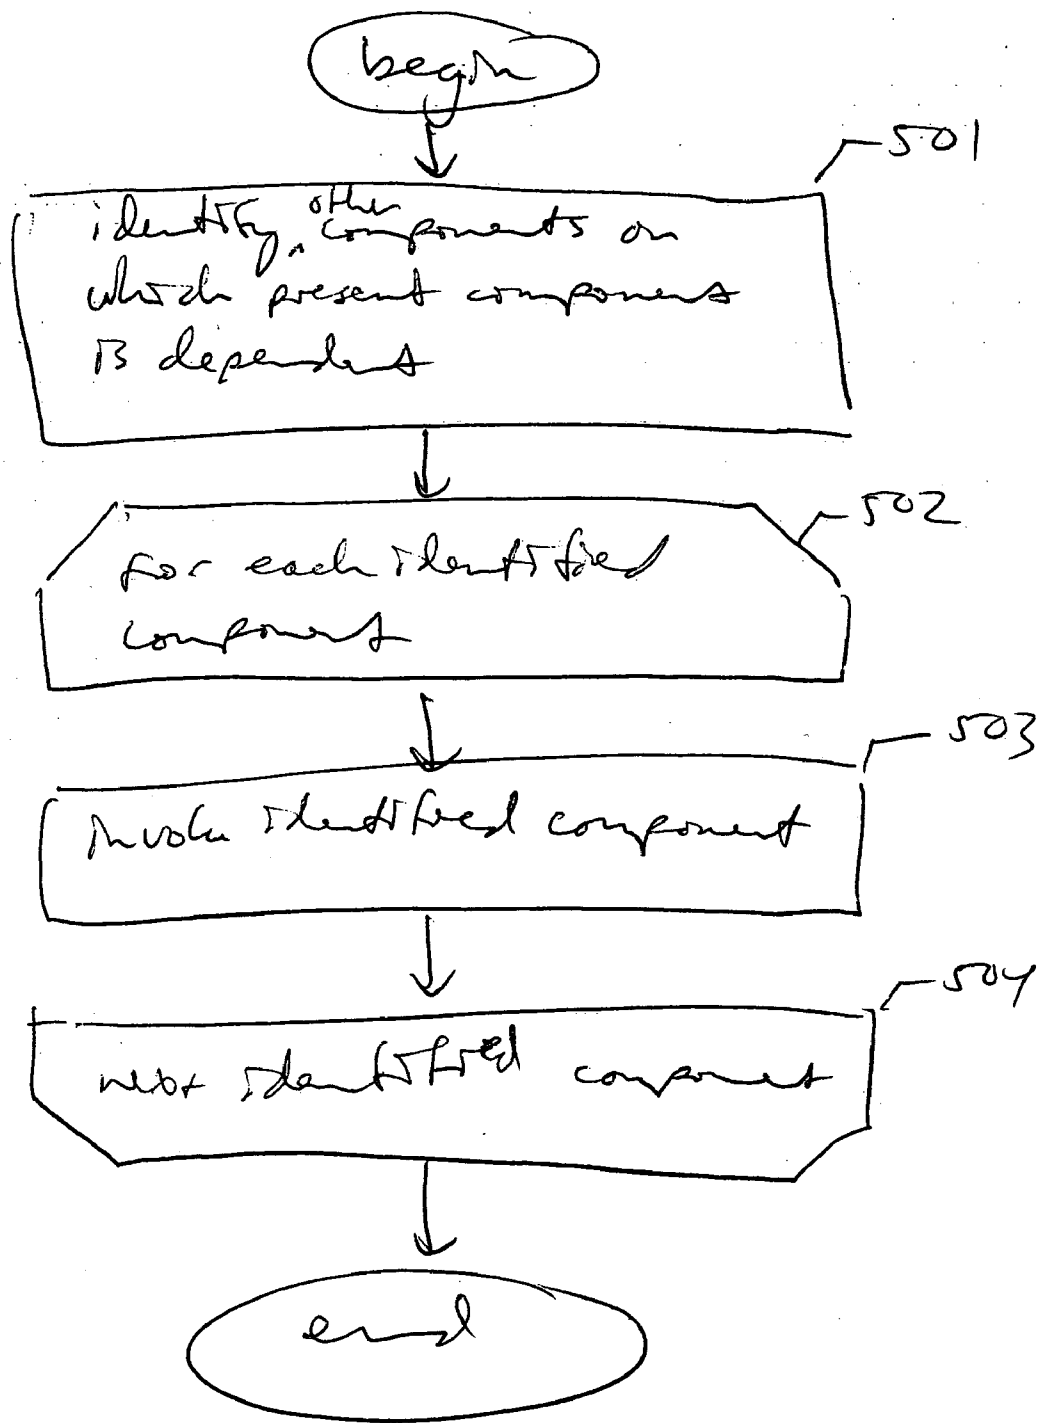 begin
501
identify other components on
which present component
is dependent
502
for each identified
component
503
invoke identified component
504
next identified component
end